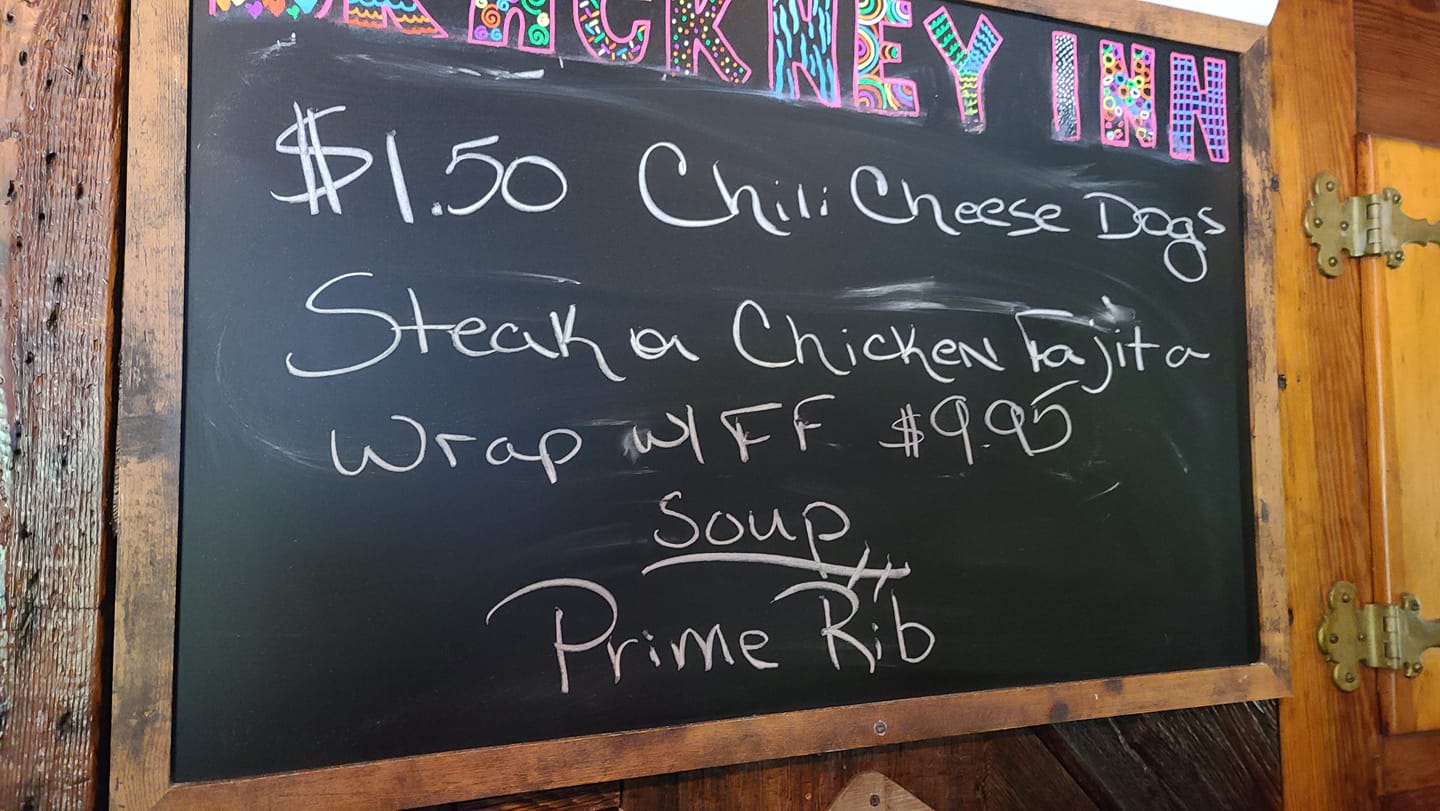 HACKNEY INN
$1.50 Chili Cheese Dogs
Steak or Chicken Fajita
Wrap w/ FF $9.95
Soup
Prime Rib